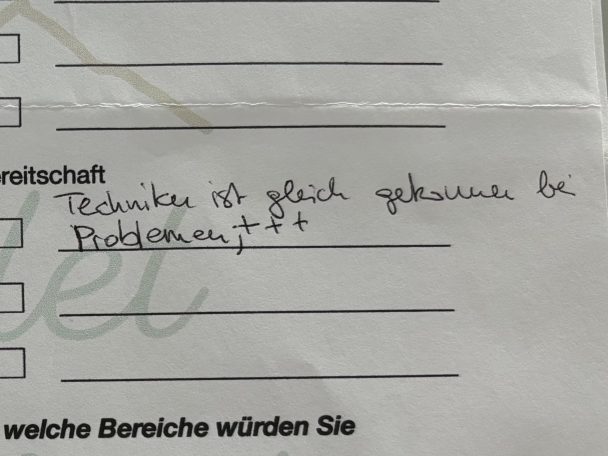 reitschaft
Techniker ist gleich gekommen bei
Problemen, +++
welche Bereiche würden Sie